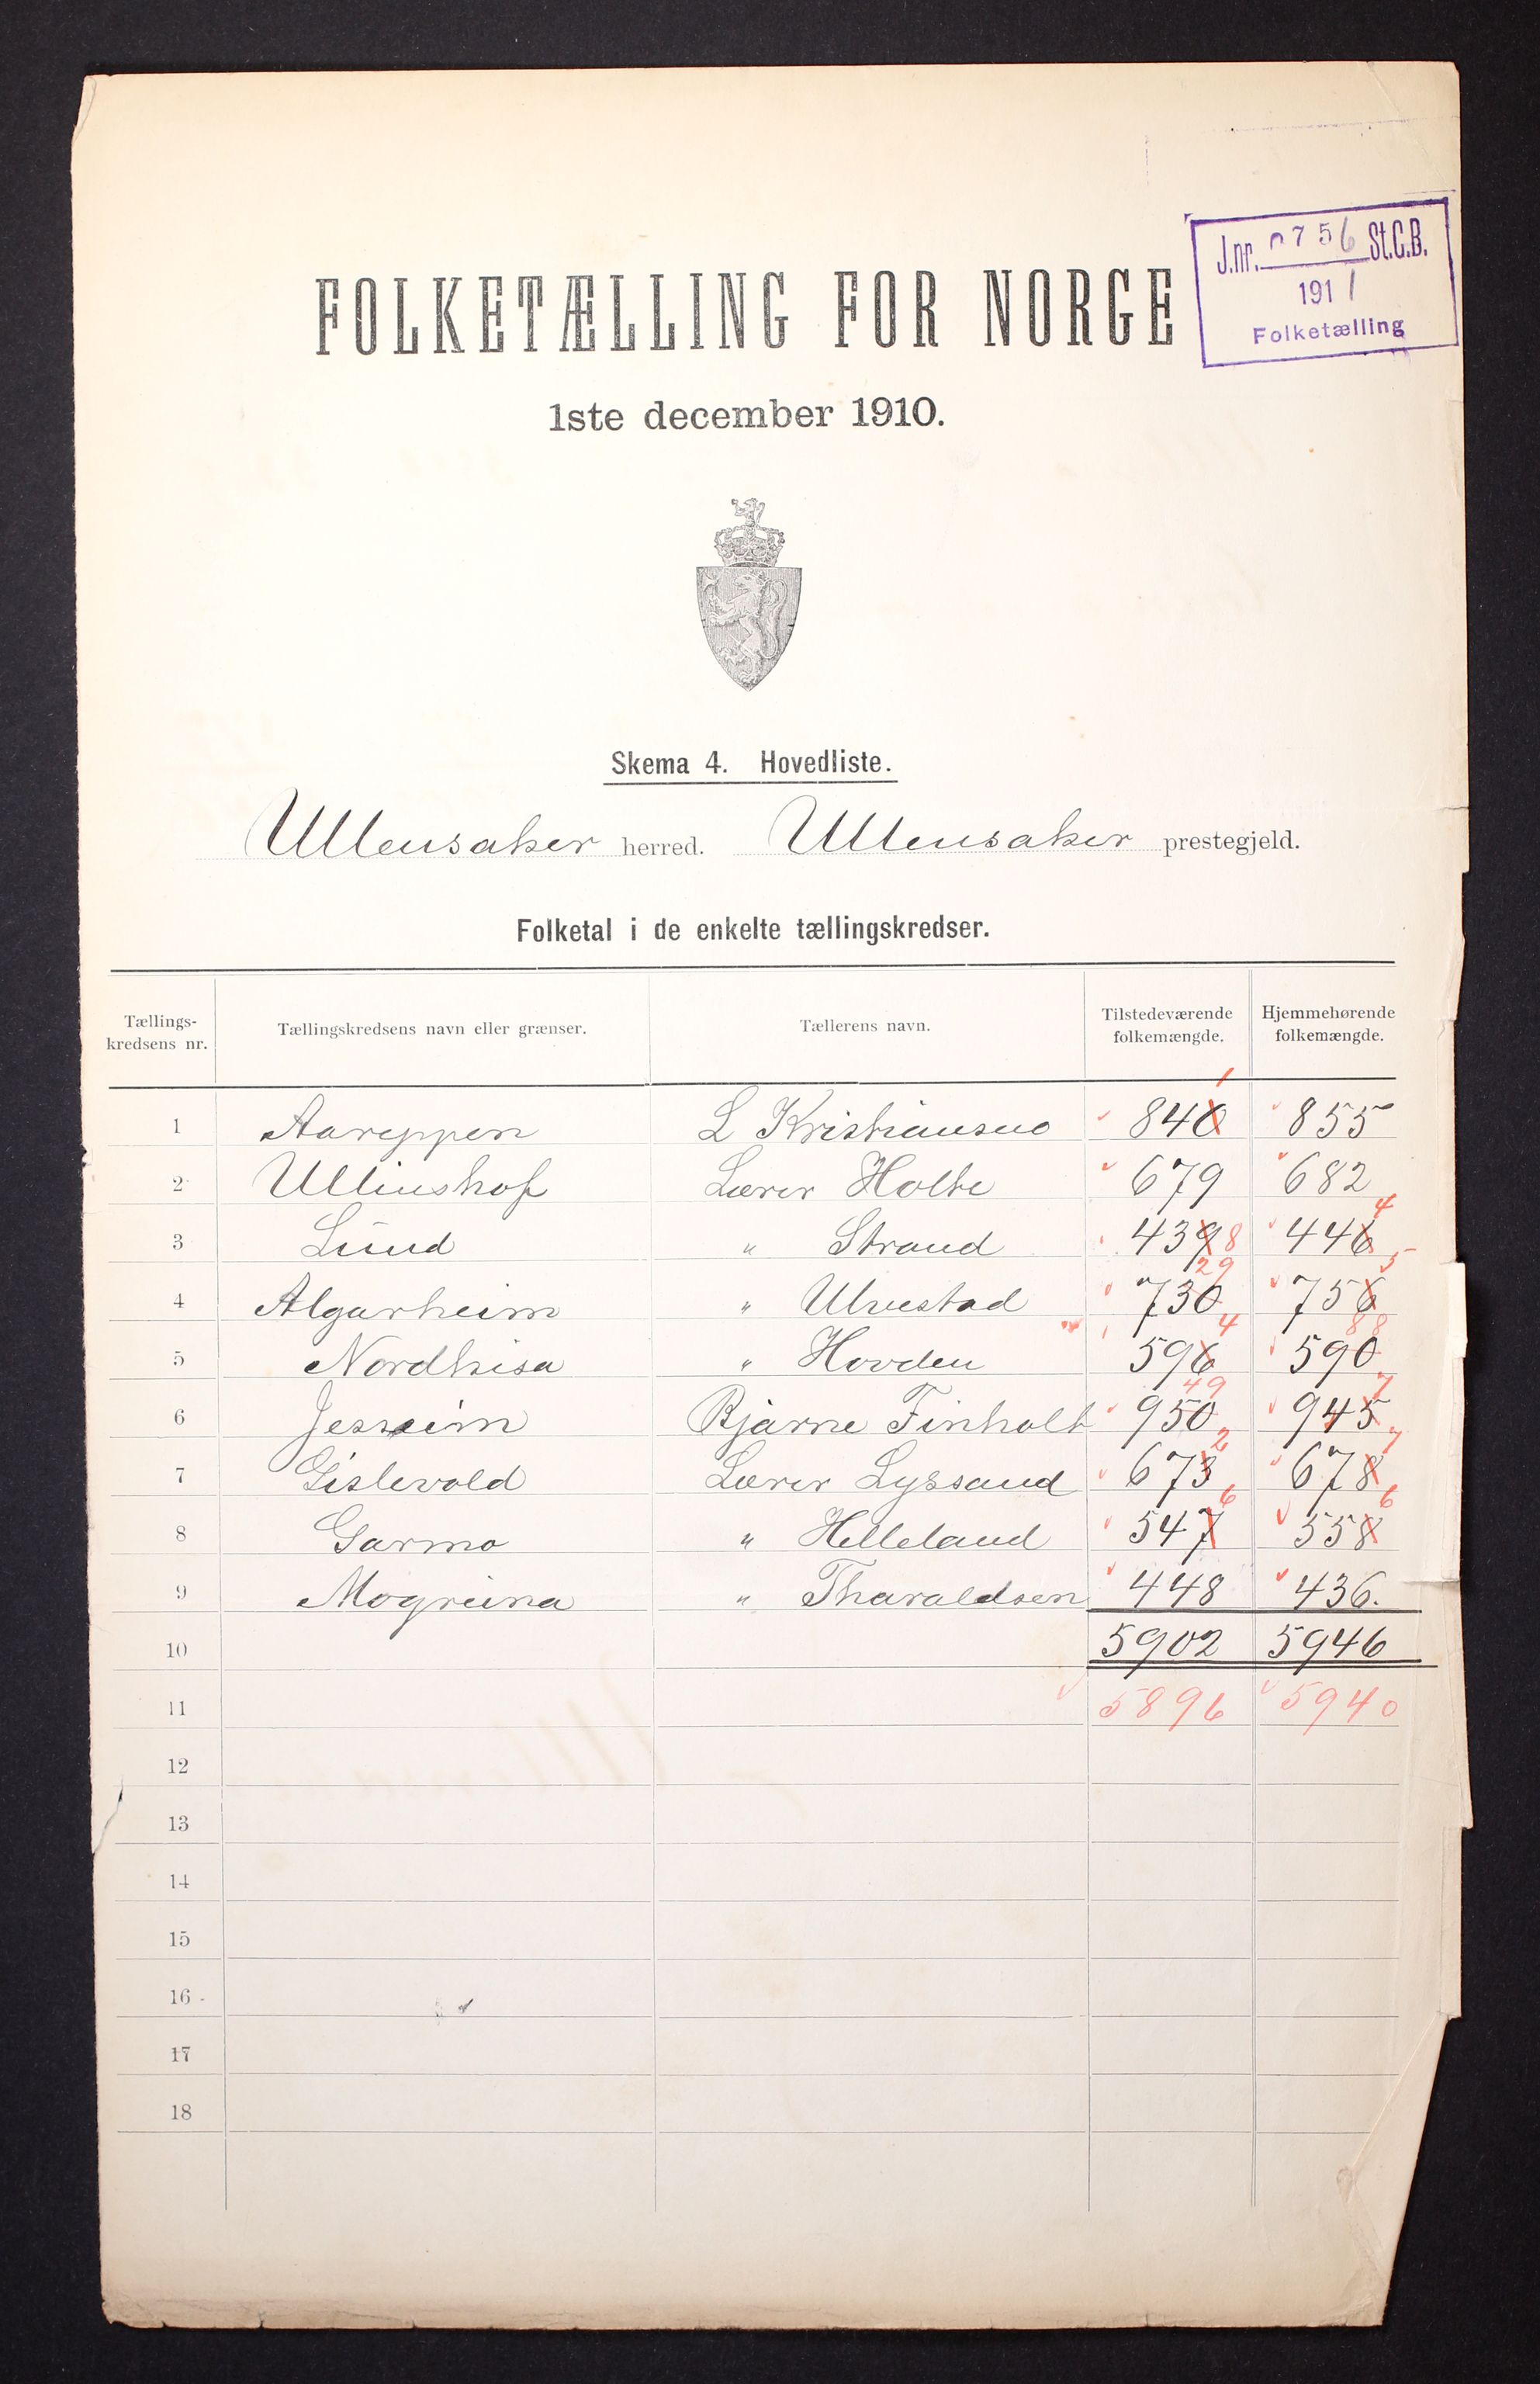 J.nr. 0756 St.C.B.
1911
Folketælling
FOLKETÆLLING FOR NORGE
1ste december 1910.
Skema 4. Hovedliste.
Ullensaker herred. Ullensaker prestegjeld.
Folketal i de enkelte tællingskredser.
Tællings-kredsens nr. Tællingskredsens navn eller grænser. Tællerens navn. Tilstedeværende folkemængde. Hjemmehørende folkemængde.
1 Aareppen L Kristiansen 840 1 855
2 Ullinshof Lærer Holte 679 682
3 Lund " Strand 439 8 446 4
4 Algarheim " Ulvestad 730 29 756 5
5 Nordkisa " Hovden 596 4 590 88
6 Jessheim Bjarne Finholt 950 49 945 7
7 Gislevold Lærer Lyssand 673 2 678 7
8 Garmo " Helleland 547 6 558 6
9 Mogreina " Tharaldsen 448 436.
10 5902 5946
11 5896 5940
12
13
14
15
16
17
18